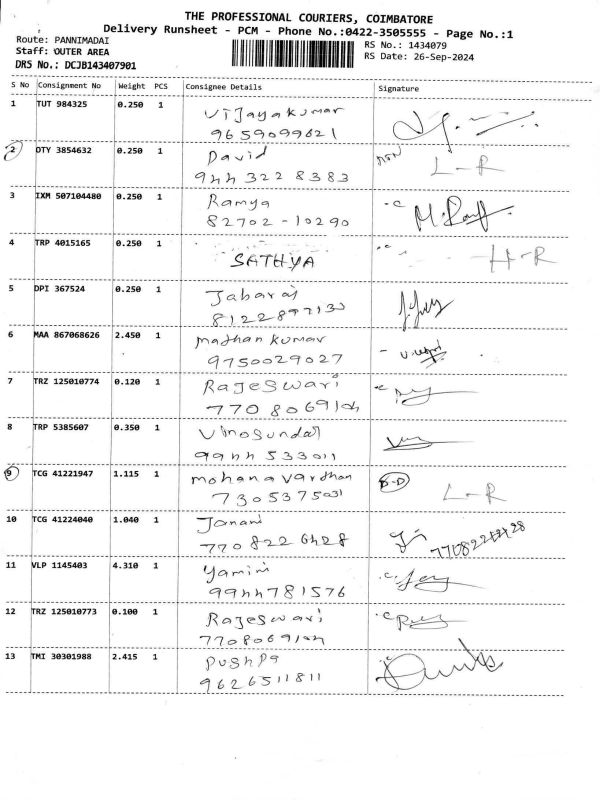 THE PROFESSIONAL COURIERS, COIMBATORE
Delivery Runsheet - PCM - Phone No.:0422-3505555 - Page No.:1
Route: PANNIMADAI
RS No.: 1434079
Staff: OUTER AREA
RS Date: 26-Sep-2024
DRS No.: DCJB143407901
S No Consignment No Weight PCS Consignee Details Signature
1 TUT 984325 0.250 1 Vijayakumar
9659099621
2 OTY 3854632 0.250 1 David L-R
944 322 8383
3 IXM 507104480 0.250 1 Ramya
82702-10290
4 TRP 4015165 0.250 1 SATHYA H-R
5 DPI 367524 0.250 1 Jabaraj
8122897133
6 MAA 867068626 2.450 1 Madhan kumar
9750029027
7 TRZ 125010774 0.120 1 Rajeswari
7708069104
8 TRP 5385607 0.350 1 Vinosundar
9944 533011
9 TCG 41221947 1.115 1 mohanavardhan D-D L-R
7305375031
10 TCG 41224040 1.040 1 Janani
770 822 6428
11 VLP 1145403 4.310 1 Yamini
9944781576
12 TRZ 125010773 0.100 1 Rajeswari
7708069104
13 TMI 30301988 2.415 1 Pushpa
9626511811